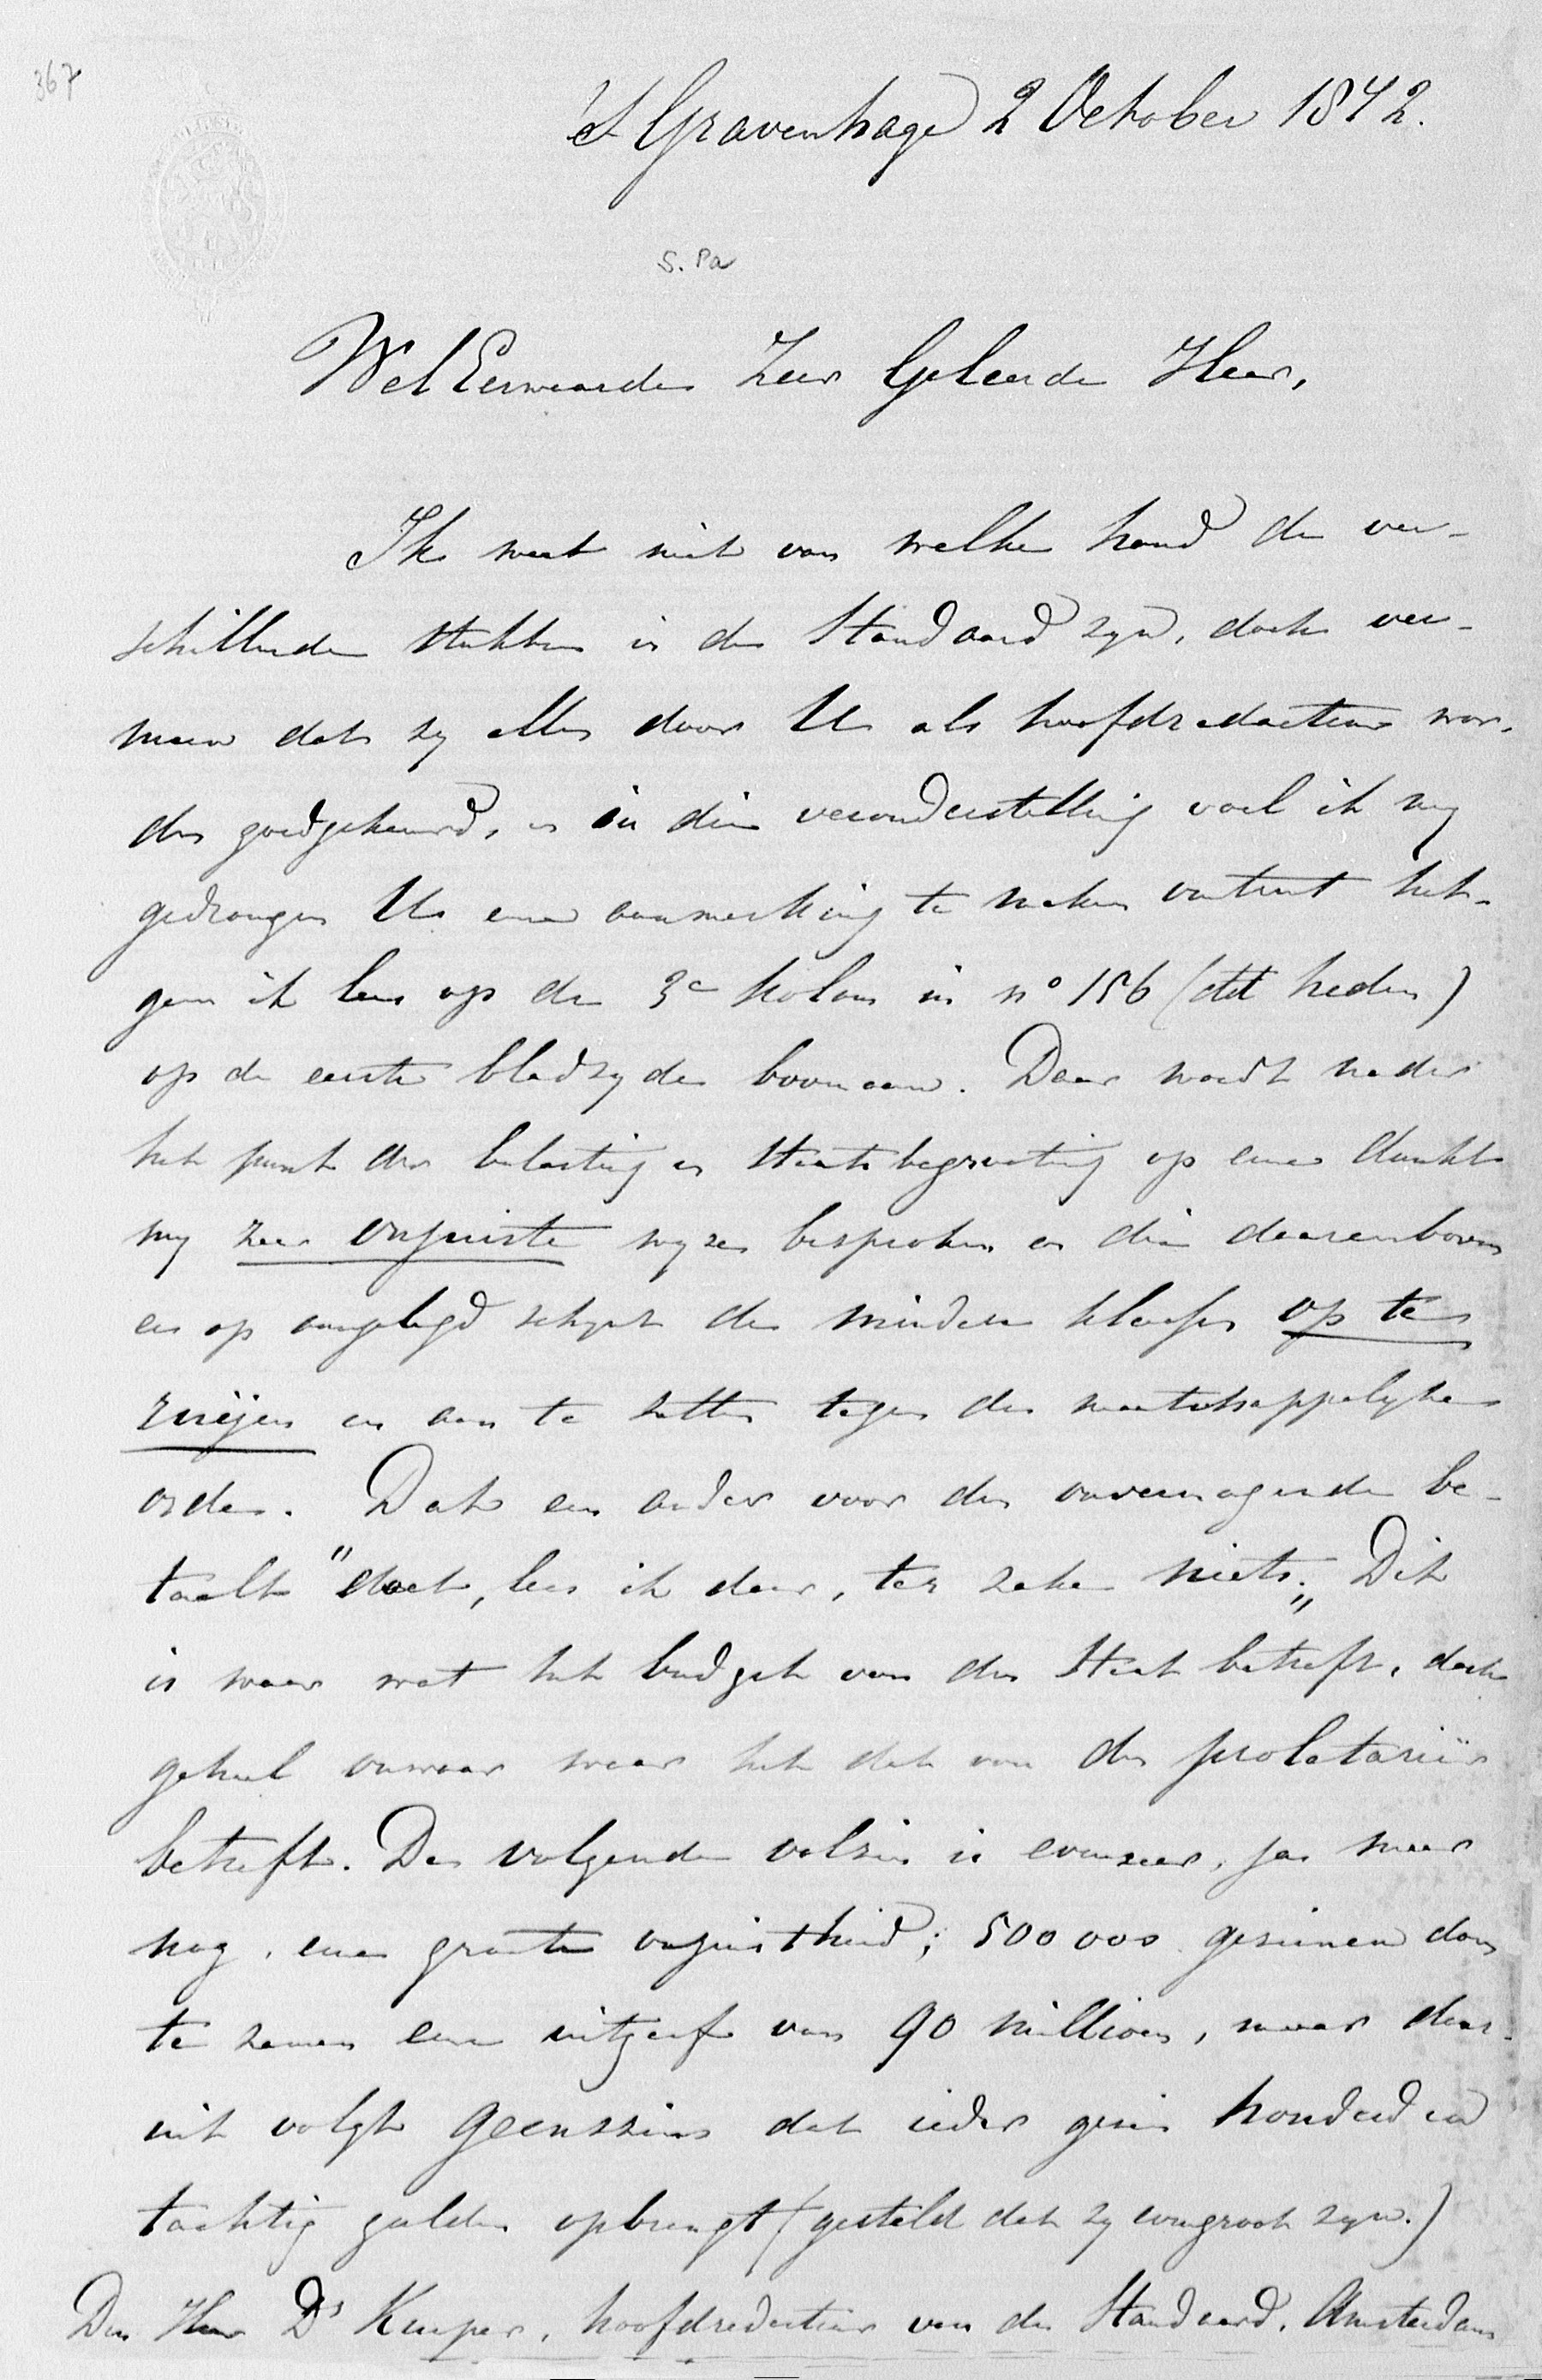 367
's Gravenhage 2 October 1872.
S. Pa
WelEerwaarde Zeer Geleerde Heer,
Ik weet niet van welke hand de ver-
schillende stukken in de Standaard zyn, doch ver-
meen dat zy allen door U als hoofdredacteur wor-
den goedgekeurd, en in die veronderstelling voel ik my
gedrongen U eene aanmerking te maken omtrent het-
geen ik lees op de 3e kolom in no 156 (dd heden)
op de eerste bladzyde bovenaan. Daar wordt nader
het punt der belasting en Staatsbegrooting op eene dunkt
my zeer onjuiste wyze besproken en die daarenboven
er op aangelegd schynt de mindere klassen op te
ruijen en aan te zetten tegen de maatschappelyke
orde. Dat een ander voor den onvermogende be-
taalt "doet, lees ik daar, ter zake niets." Dit
is waar wat het budget van den Staat betreft, doch
geheel onwaar waar het dat van den proletariër
betreft. De volgende volzin is evenzeer, ja meer
nog, eene groote onjuistheid; 500 000 gezinnen doen
te zamen eene uitgaaf van 90 millioen, maar daar-
uit volgt geenszins dat ieder gezin honderd en
tachtig gulden opbrengt (gesteld dat zy evengroot zyn.)
Den Heer Ds Kuyper, hoofdredacteur van de Standaard, Amsterdam